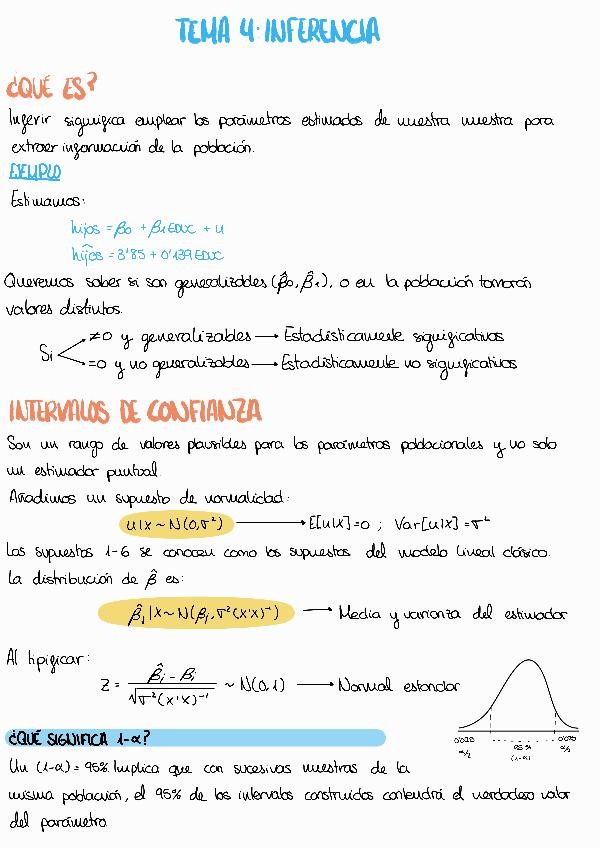 TEMA 4: INFERENCIA
¿QUÉ ES?
Inferir significa emplear los parámetros estimados de nuestra muestra para
extraer información de la población.
EJEMPLO
Estimamos:
hijos = β₀ + β₁EDUC + u
hijos^ = 3'85 + 0'129 EDUC
Queremos saber si son generalizables (β̂₀, β̂₁), o en la población tomarán
valores distintos.
Si ≠0 y generalizables → Estadísticamente significativos
=0 y no generalizables → Estadísticamente no significativos
INTERVALOS DE CONFIANZA
Son un rango de valores plausibles para los parámetros poblacionales y no solo
un estimador puntual.
Añadimos un supuesto de normalidad:
u|x ~ N(0,σ²) → E[u|X]=0 ; Var[u|X] = σ²
Los supuestos 1-6 se conocen como los supuestos del modelo lineal clásico.
La distribución de β̂ es:
β̂ⱼ|X ~ N(βⱼ, σ²(X'X)⁻¹) → Media y varianza del estimador
Al tipificar:
Z = β̂ⱼ - βⱼ / √σ²(X'X)⁻¹ ~ N(0,1) → Normal estándar
0'025 95% 0'025
α/2 (1-α) α/2
¿QUÉ SIGNIFICA 1-α?
Un (1-α) = 95% implica que con sucesivas muestras de la
misma población, el 95% de los intervalos construidos contendrá el verdadero valor
del parámetro.